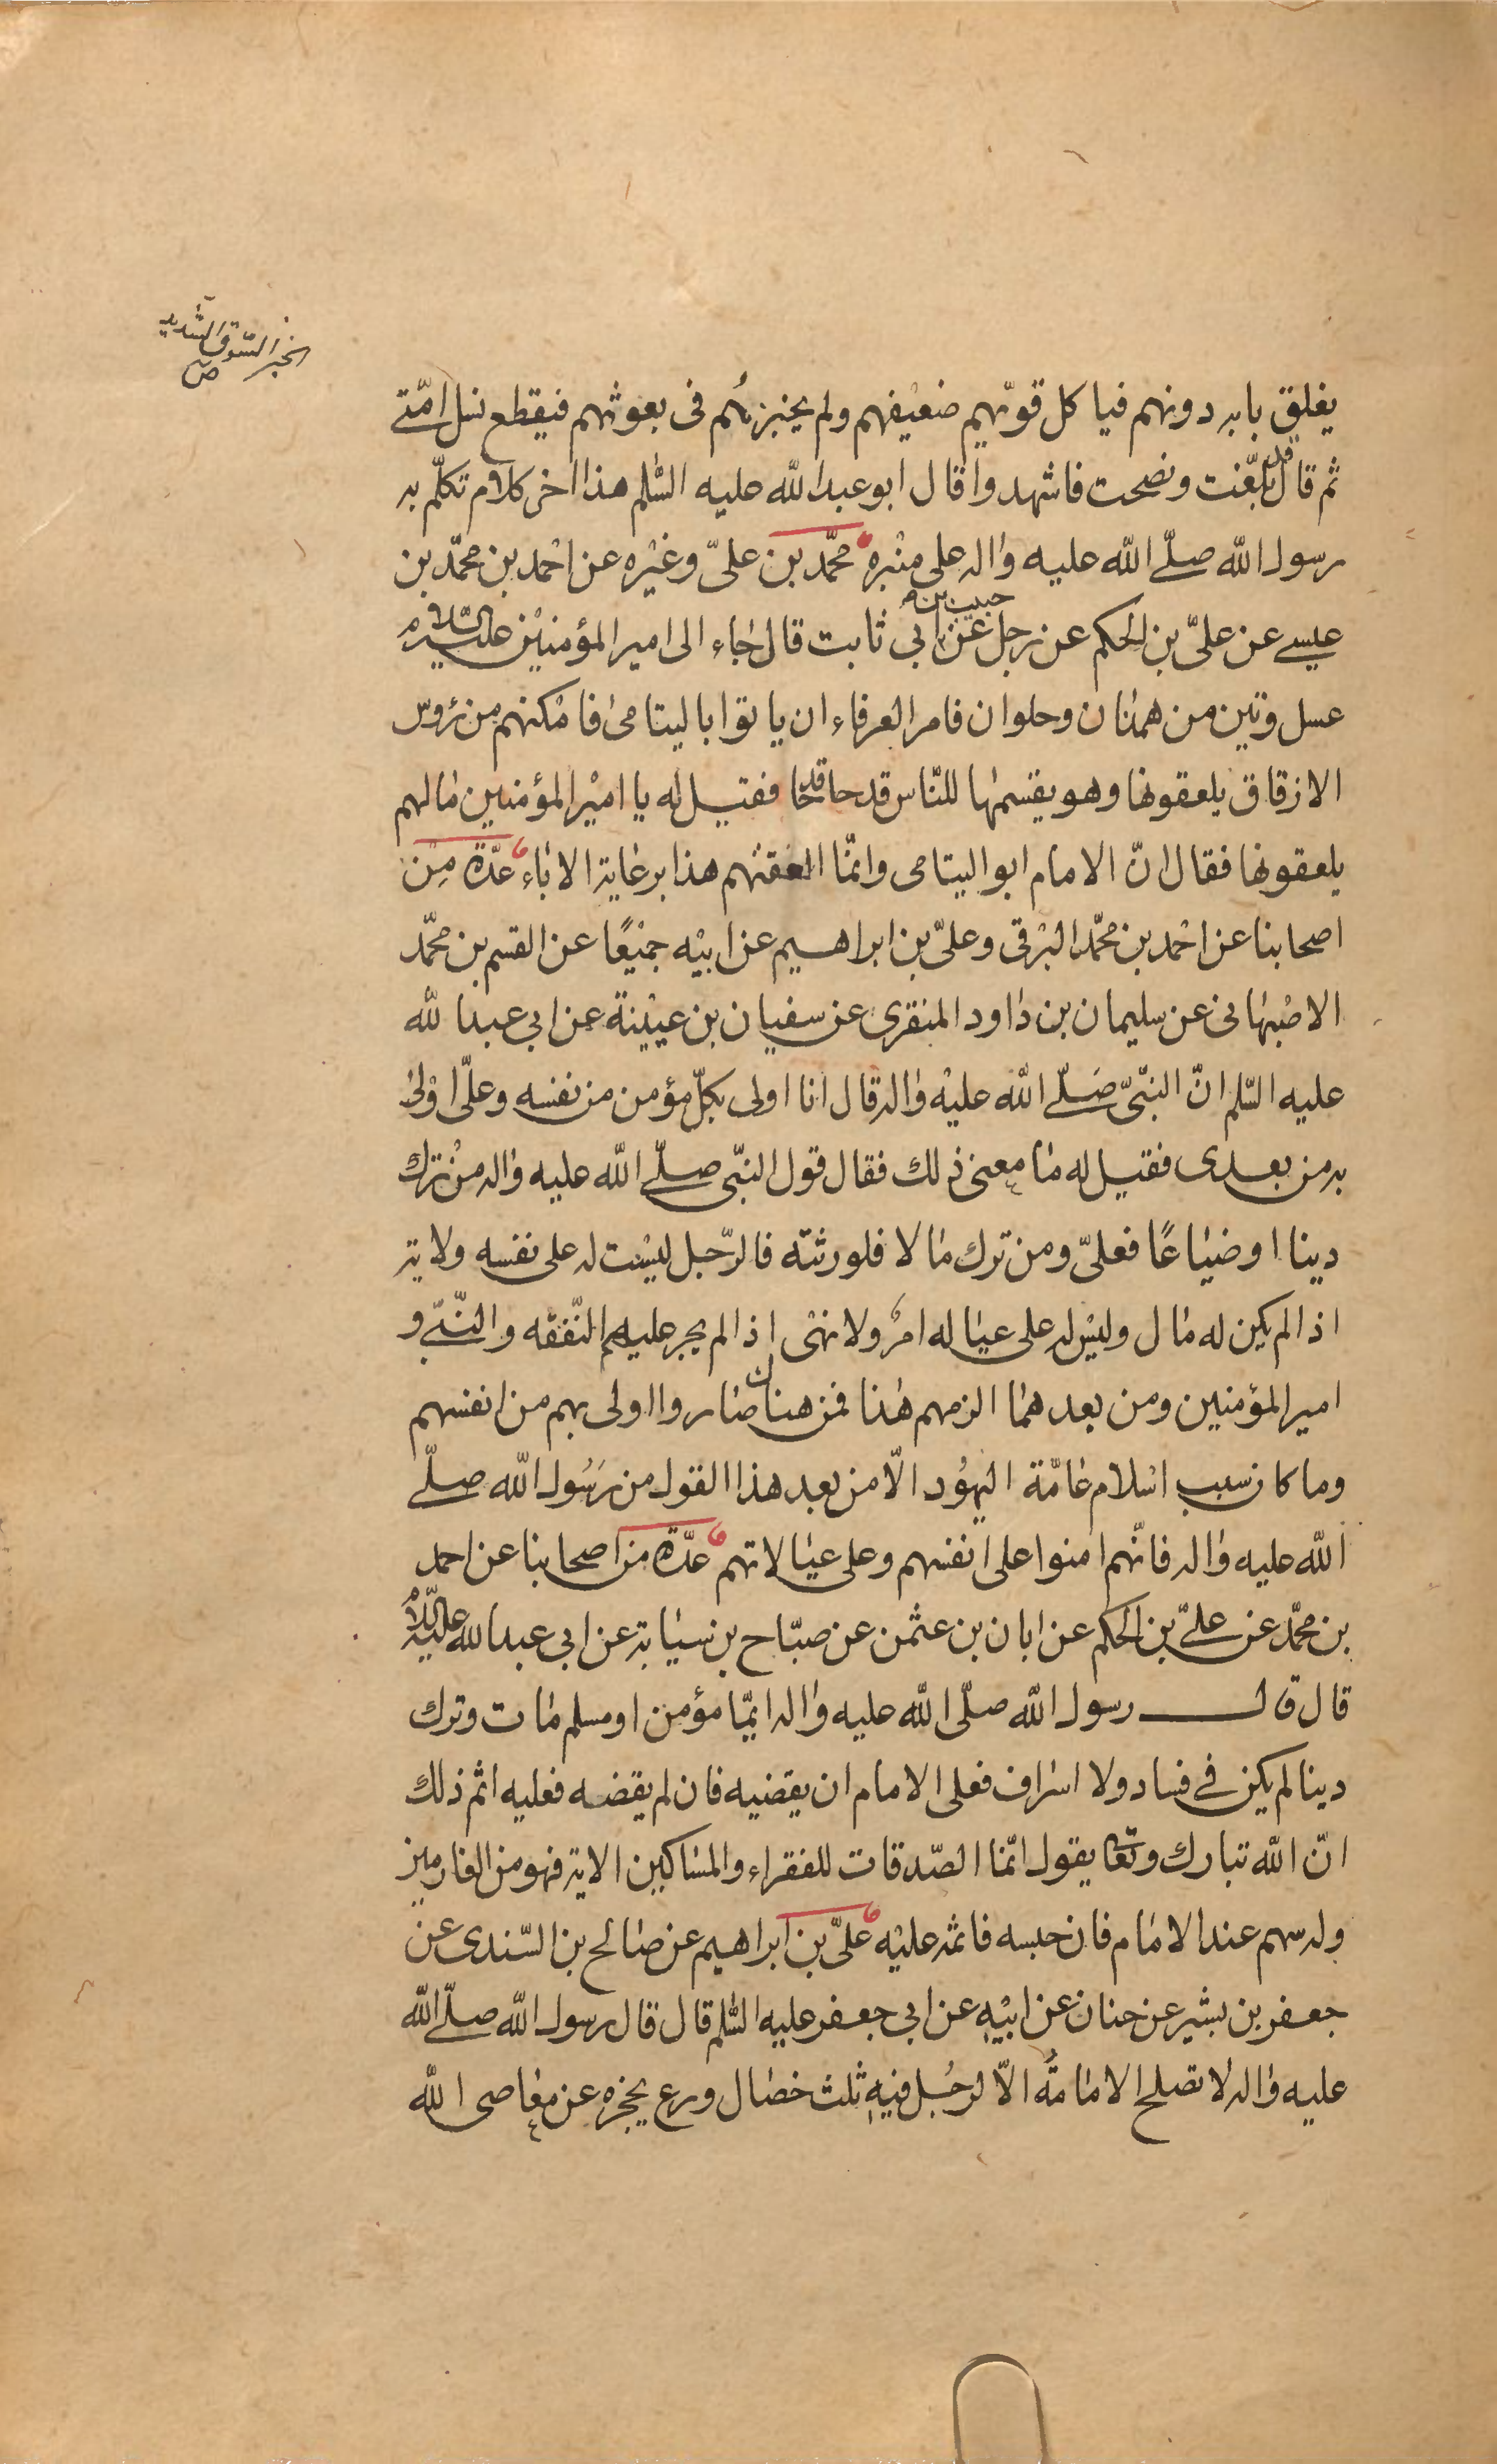 الخبز السّوق الشّديد
ص
يغلق بابه دونهم فيا كل قويّهم ضعيفهم ولم يخبزهم فى بعوثهم فيقطع نسل امّتى
ثم قال قد بلّغت ونصحت فاشهدوا قال ابو عبد الله عليه السّلم هذا اخر كلام تكلّم به
رسول الله صلّى الله عليه واله على منبره محمّد بن علىّ وغيره عن احمد بن محمّد بن
عيسى عن علىّ بن الحكم عن رجل عن حبيب بن ابى ثابت قال جاء الى امير المؤمنين عليه السّلام
عسل وتين من همدان وحلوان فامر العرفاء ان ياتوا باليتامى فامكنهم من رؤس
الازقاق يلعقونها وهو يقسمها للنّاس قدحا قدحا فقيل له يا امير المؤمنين ما لهم
يلعقونها فقال انّ الامام ابو اليتامى وانّما العقتهم هذا برعاية الاباء عدّة من
اصحابنا عن احمد بن محمّد البرقى وعلىّ بن ابراهيم عن ابيه جميعًا عن القسم بن محمّد
الاصبهانى عن سليمان بن داود المنقرى عن سفيان بن عيينة عن ابى عبد الله
عليه السّلم انّ النّبىّ صلّى الله عليه واله قال انا اولى بكلّ مؤمن من نفسه وعلىّ اولى
به من بعدى فقيل له ما معنى ذلك فقال قول النّبى صلّى الله عليه واله من ترك
دينا او ضياعًا فعلىّ ومن ترك مالا فلورثته فالرّجل ليست له على نفسه ولاية
اذا لم يكن له مال وليس له على عياله امر ولا نهى اذا لم يجر عليهم النّفقه والنّبى و
امير المؤمنين ومن بعدهما الزمهم هذا فمن هناك صاروا اولى بهم من انفسهم
وما كان سبب اسلام عامّة اليهود الّا من بعد هذا القول من رسول الله صلّى
الله عليه واله فانّهم امنوا على انفسهم وعلى عيالاتهم عدّة من اصحابنا عن احمد
بن محمّد عن علىّ بن الحكم عن ابان بن عثمن عن صبّاح بن سيابة عن ابى عبد الله عليه السّلام
قال قال رسول الله صلّى الله عليه واله ايّما مؤمن او مسلم مات وترك
دينا لم يكن فى فساد ولا اسراف فعلى الامام ان يقضيه فان لم يقضه فعليه اثم ذلك
انّ الله تبارك وتعا يقول انّما الصّدقات للفقراء والمساكين الاية فهو من الغارمين
وله سهم عند الامام فان حبسه فاثمه عليه علىّ بن ابراهيم عن صالح بن السّندى عن
جعفر بن بشير عن حنان عن ابيه عن ابى جعفر عليه السّلم قال قال رسول الله صلّى الله
عليه واله لا تصلح الامامة الّا لرجل فيه ثلث خصال ورع يحجزه عن معاصى الله